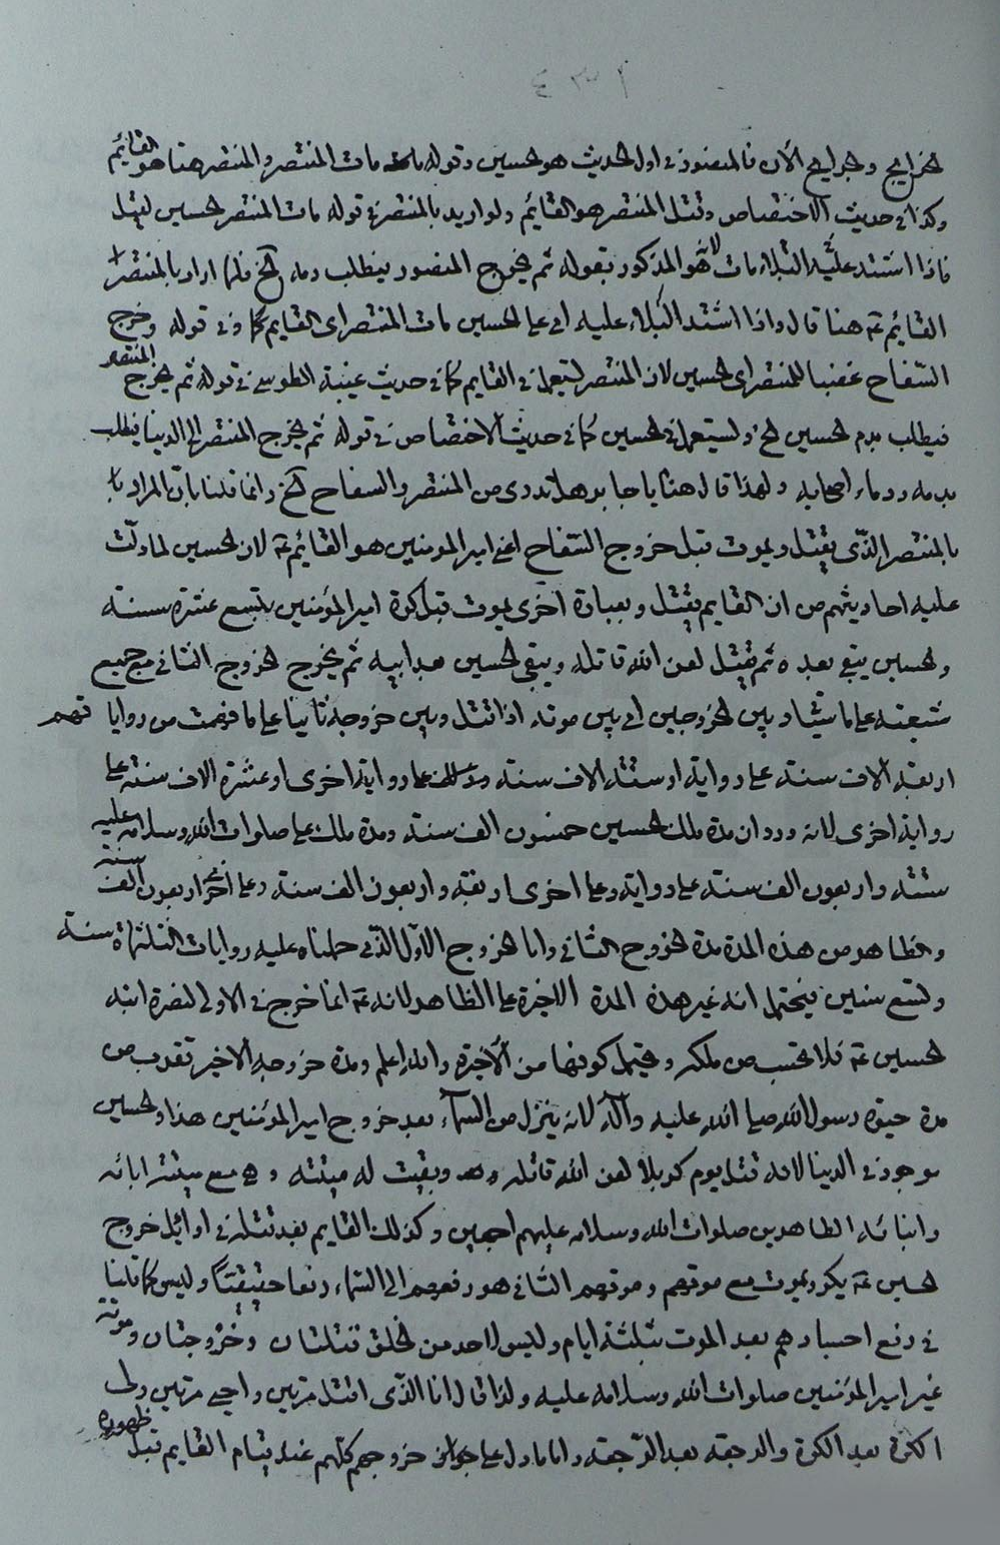 ٤٣١
الخرايج والجرايح الآن فالمنصور في اول الحديث هو الحسين وقوله مات المنتصر والمنتصر هنا هو القايم
وكذا في حديث الاختصاص وقتل المنتصر هو القايم ولو اريد بالمنتصر في قوله مات المنتصر الحسين لقيل
فاذا اشتد عليه البلاء مات لانه هو المذكور بقوله ثم يخرج المنصور يطلب دمه الخ فلما اراد بالمنتصر
القايم ع هنا قال واذا اشتد البلاء عليه اي على الحسين مات المنتصر اي القايم كما في قوله وخرج
السفاح غضبا للمنتصر اي الحسين لان المنتصر يستعمل في القايم كما في حديث غيبة الطوسي في قوله ثم يخرج المنتصر
فيطلب بدم الحسين الخ ويستعمل في الحسين كما في حديث الاختصاص في قوله ثم يخرج المنتصر الى الدنيا فيطلب
بدمه ودماء اصحابه ولهذا قال هنا يا جابر هل تدري من المنتصر والسفاح الخ وانما قلنا بان المراد
بالمنتصر الذي يقتل ويموت قبل خروج السفاح اعني امير المومنين هو القائم ع لان الحسين لما دلت
عليه احاديثهم من ان القايم يقتل وبعبارة اخرى يموت قبل كرة امير المؤمنين بتسع عشرة سنة
والحسين يبقى بعده ثم يقتل لعن الله قاتله ويبقى الحسين بعد ابيه ثم يخرج الخروج الثاني مع جميع
شيعته على ما بين الخروجين اي بين موته اذا قتل وبين خروجه ثانيا على ما فهمت من رواياتهم
اربعة الاف سنة على رواية او ستة الاف سنة على رواية اخرى او عشرة الاف سنة على
رواية اخرى لانه ورد ان مدة ملك الحسين خمسون الف سنة ومدة ملك علي صلوات الله وسلامه عليه
ستة واربعون الف سنة على رواية وعلى اخرى اربعة واربعون الف سنة وعلى اخرى اربعون الف سنة
والظاهر من هذه المدة مدة الخروج الثاني واما الخروج الاول الذي حملنا عليه روايات الثلثمائة سنة
وتسع سنين فيحتمل انه غير هذه المدة الاخيرة على الظاهر لانه ع انما خرج في الاولى لنصرة ابنه
الحسين ع فلا تحتسب من ملكه ويحتمل كونها من الاخيرة والله اعلم ومدة خروجه الاخير تقرب من
مدة حيوة رسول الله صلى الله عليه وآله لانه ينزل من السماء بعد خروج امير المؤمنين هذا والحسين
موجود في الدنيا لانه قتل يوم كربلا لعن الله قاتله وبقيت له ميتته وهي مع ميتة ابائه
وابنائه الطاهرين صلوات الله وسلامه عليهم اجمعين وكذلك القايم بعد قتله في اوايل خروج
الحسين ع يكر ويموت مع موتهم وموتهم الثاني هو رفعهم الى السماء رفعا حقيقتا وليس كما قلنا
في رفع اجسادهم بعد الموت بثلثة ايام وليس لاحد من الخلق قتلتان وخروجتان وموتة
غير امير المؤمنين صلوات الله وسلامه عليه ولذا قال انا الذي اقتل مرتين واحيى مرتين ولي
الكرة بعد الكرة والرجعة بعد الرجعة واما ما دل على جواز خروجهم كلهم عند قيام القايم قبل ظهوره